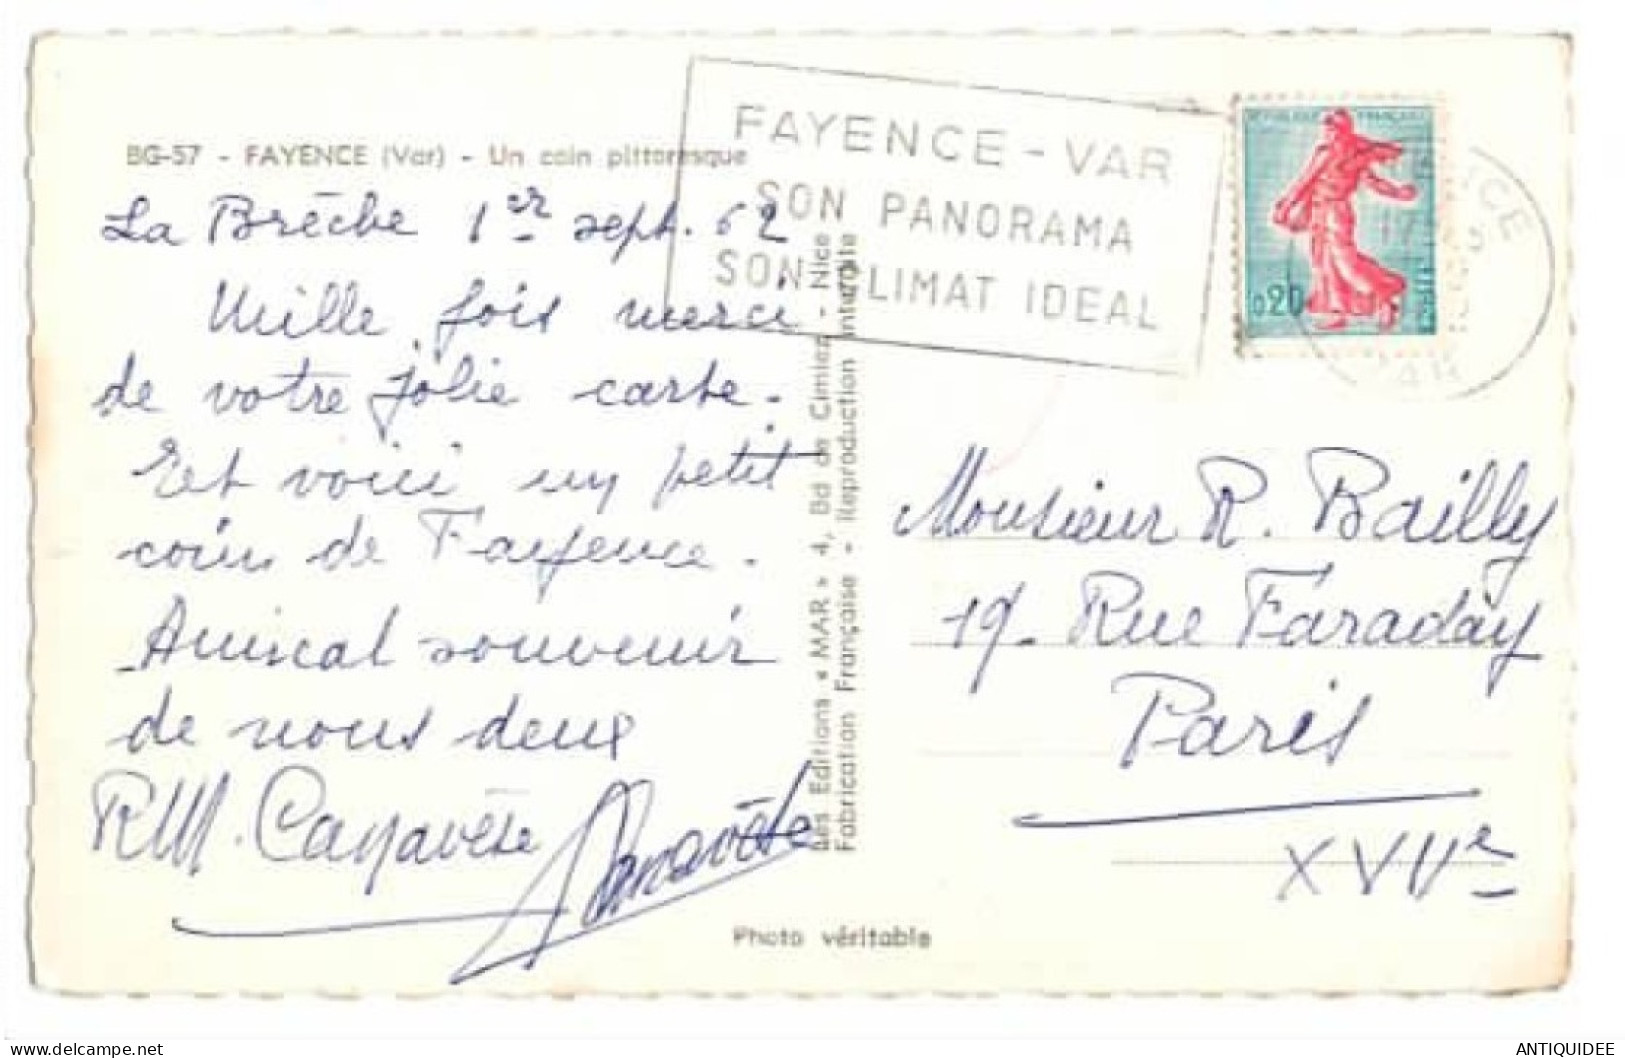 BG-57 - FAYENCE (Var) - Un coin pittoresque
La Brèche 1er sept. 62
Mille fois merci
de votre jolie carte.
Et voici un petit
coin de Fayence.
Amical souvenir
de nous deux
RM. Canavèse
FAYENCE - VAR
SON PANORAMA
SON CLIMAT IDEAL
REPUBLIQUE FRANÇAISE
0,20
VAR
Les Editions « MAR » 4, Bd de Cimiez - Nice
Fabrication Française - Reproduction interdite
Monsieur R. Bailly
19- Rue Faraday
Paris
XVIIe
Photo véritable
ANTIQUIDEE
https://www.delcampe.net